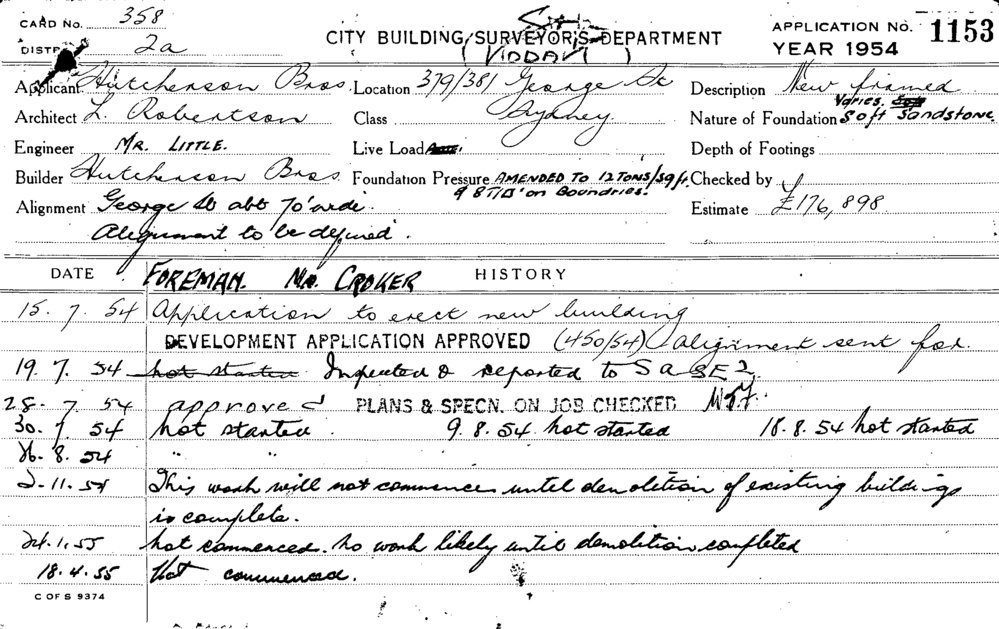 CARD No. 358
DISTRICT 2a
CITY BUILDING SURVEYOR'S DEPARTMENT
APPLICATION No. 1153
YEAR 1954
Applicant Hutcherson Bros. Location 379/381 George St Description New framed
Architect L. Robertson Class Sydney Nature of Foundation Varies. Soft Sandstone.
Engineer MR. LITTLE. Live Load Depth of Footings
Builder Hutcherson Bros Foundation Pressure AMENDED TO 12 TONS/SQ ft. Checked by
& 8T/□' on Boundries.
Alignment George St abt 70' wide. Estimate £176,898
Alignment to be defined.
DATE FOREMAN. MR. CROKER HISTORY
15. 7. 54 Application to erect new building
DEVELOPMENT APPLICATION APPROVED (450/54) alignment sent for.
19. 7. 54 not started Inspected & reported to
28. 7. 54 approved PLANS & SPECN. ON JOB CHECKED
30. 7. 54 not started. 9. 8. 54 not started 18. 8. 54 not started
26. 8. 54 " "
2. 11. 54 This work will not commence until demolition of existing buildings
is complete.
24. 1. 55 not commenced. no work likely until demolition completed
18. 4. 55 Not commenced.
C OF S 9374